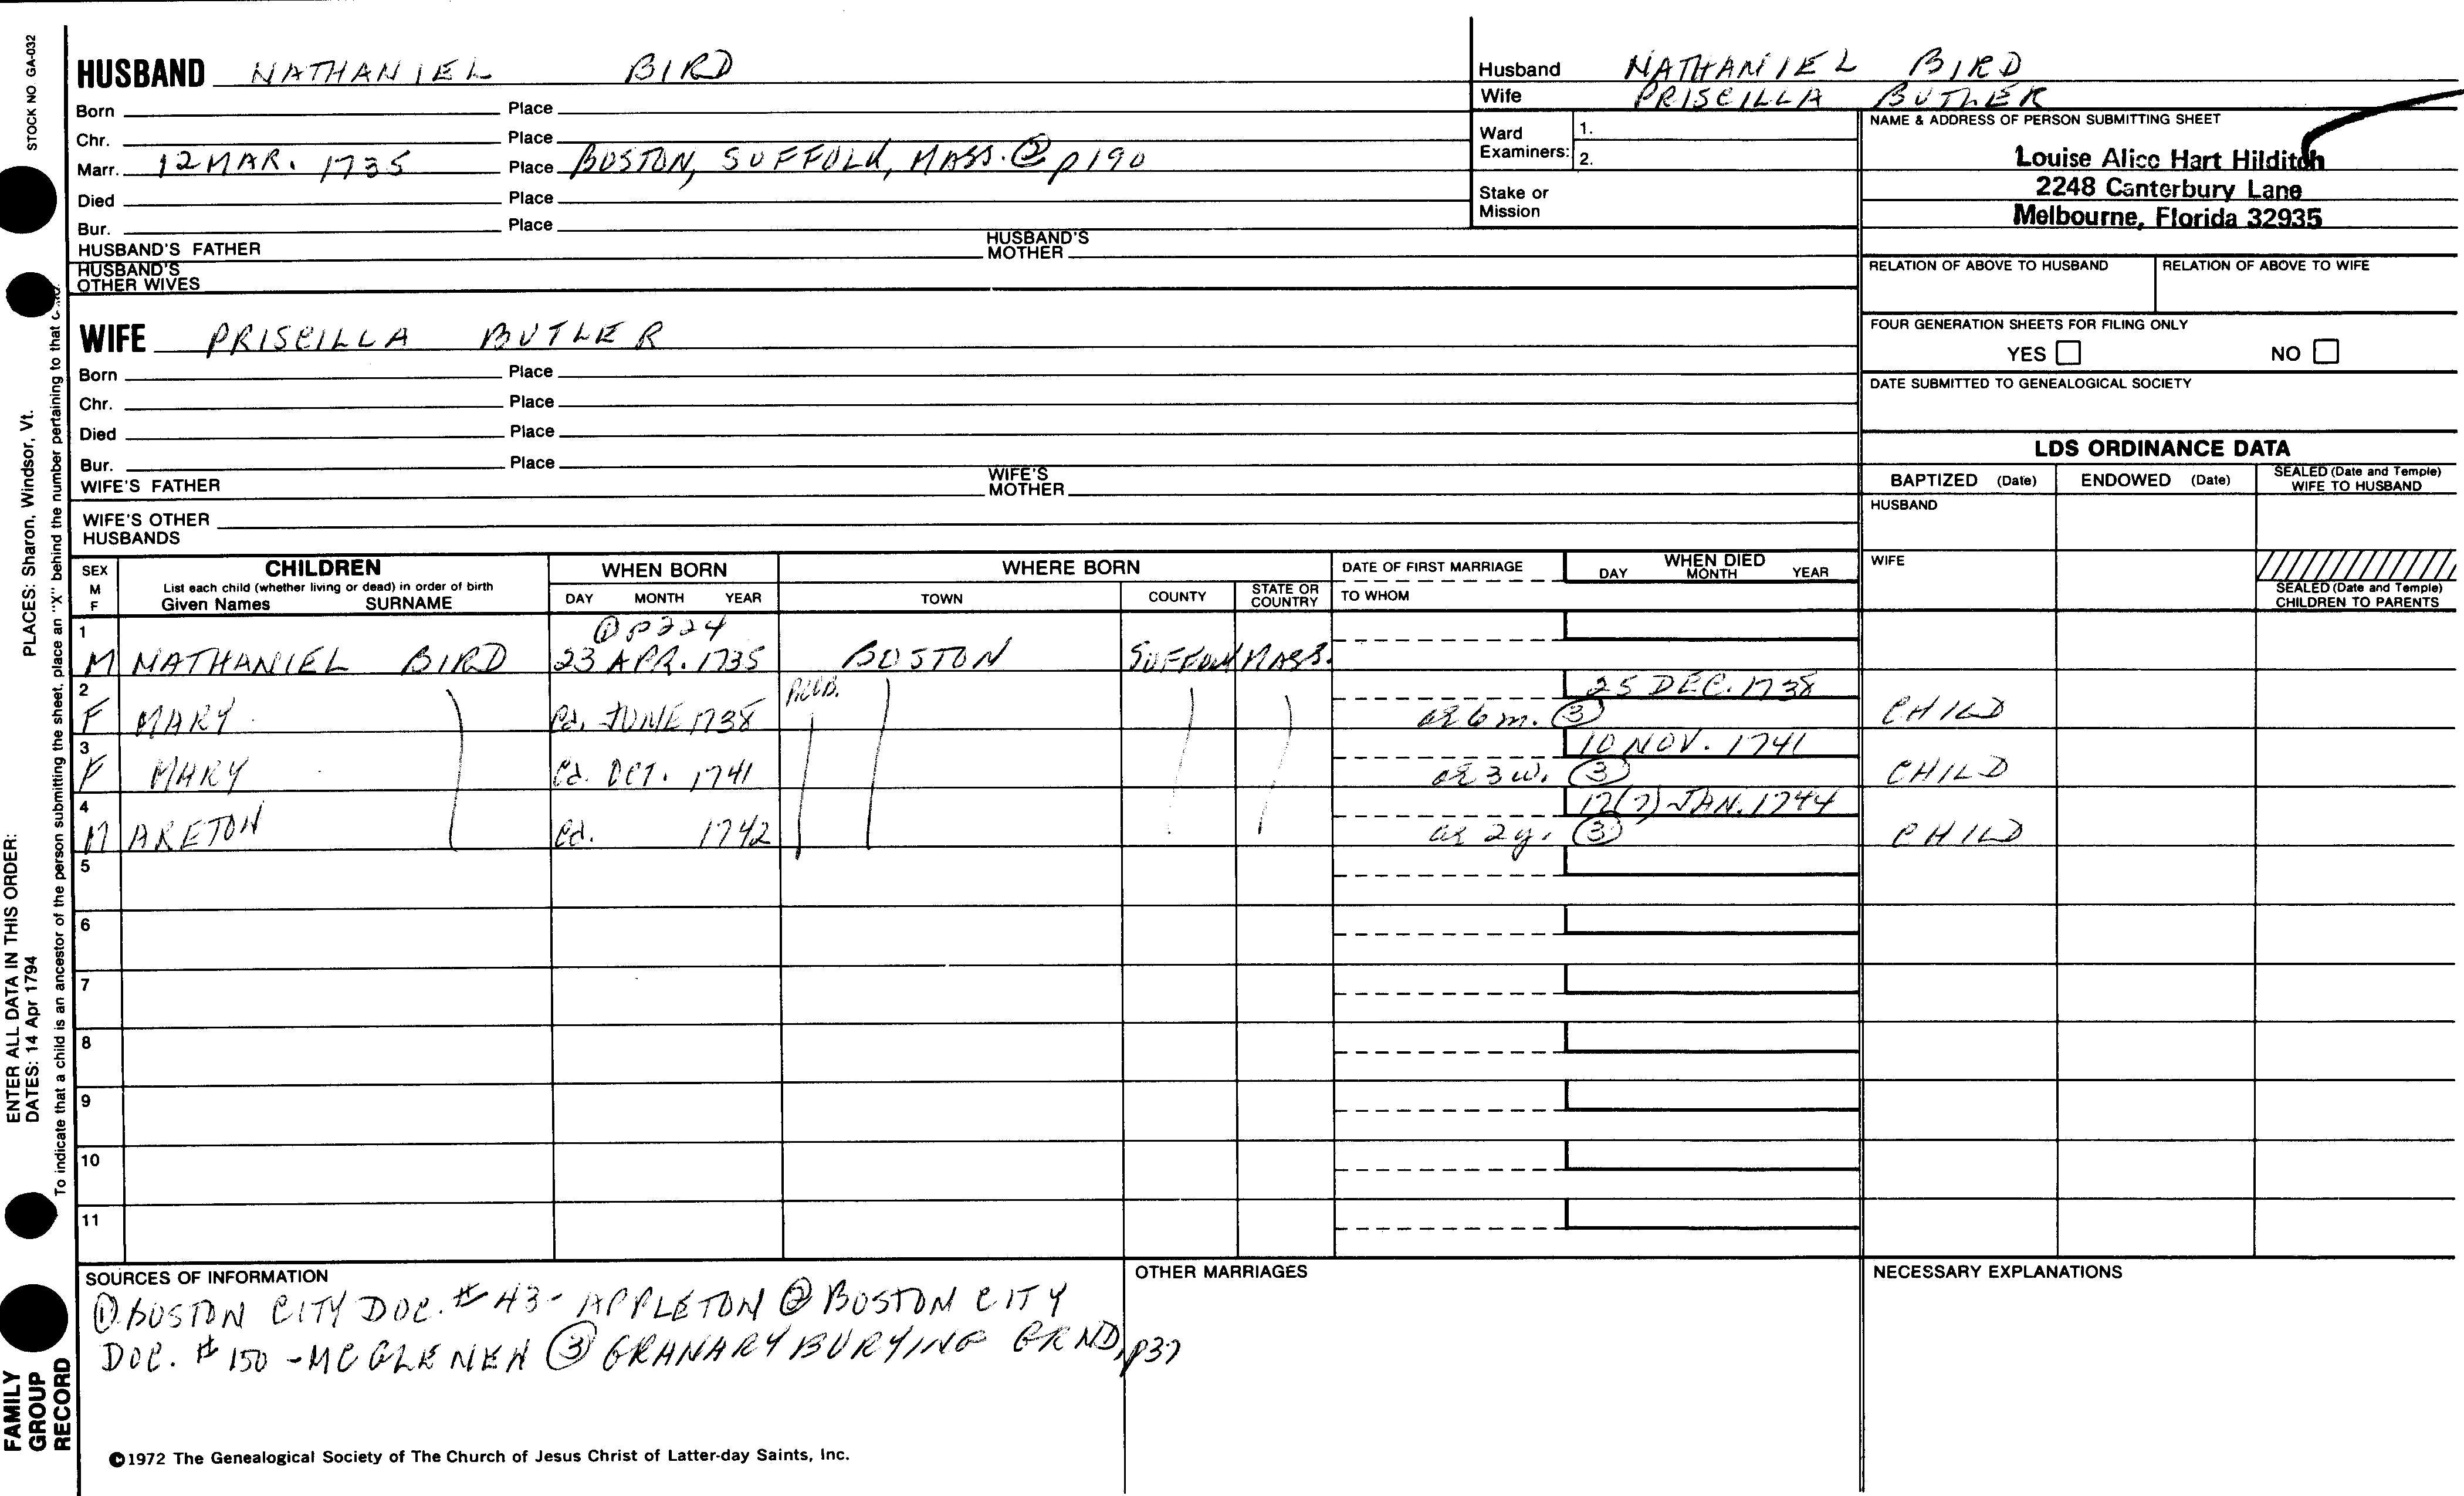 STOCK NO GA-032
HUSBAND NATHANIEL BIRD
Born Place
Chr. Place
Marr. 12 MAR. 1735 Place BOSTON, SUFFOLK, MASS. ② p190
Died Place
Bur. Place
HUSBAND'S FATHER HUSBAND'S MOTHER
HUSBAND'S OTHER WIVES
WIFE PRISCILLA BUTLER
Born Place
Chr. Place
Died Place
Bur. Place
WIFE'S FATHER WIFE'S MOTHER
WIFE'S OTHER HUSBANDS
Husband NATHANIEL BIRD
Wife PRISCILLA BUTLER
Ward Examiners: 1.
2.
Stake or Mission
NAME & ADDRESS OF PERSON SUBMITTING SHEET
Louise Alice Hart Hilditch
2248 Canterbury Lane
Melbourne, Florida 32935
RELATION OF ABOVE TO HUSBAND RELATION OF ABOVE TO WIFE
FOUR GENERATION SHEETS FOR FILING ONLY
YES NO
DATE SUBMITTED TO GENEALOGICAL SOCIETY
LDS ORDINANCE DATA
BAPTIZED (Date) ENDOWED (Date) SEALED (Date and Temple) WIFE TO HUSBAND
HUSBAND
WIFE
SEALED (Date and Temple) CHILDREN TO PARENTS
SEX M F CHILDREN WHEN BORN WHERE BORN DATE OF FIRST MARRIAGE WHEN DIED
List each child (whether living or dead) in order of birth
Given Names SURNAME DAY MONTH YEAR TOWN COUNTY STATE OR COUNTRY TO WHOM DAY MONTH YEAR
1 ① p224
M NATHANIEL BIRD 23 APR. 1735 BOSTON SUFFOLK MASS.
2 25 DEC. 1738
F MARY Cd. JUNE 1738 ae 6 m. ③ CHILD
3 10 NOV. 1741
F MARY Cd. OCT. 1741 ae 3 w. ③ CHILD
4 12(?) JAN. 1744
M ARETON Cd. 1742 ae 2 y. ③ CHILD
5
6
7
8
9
10
11
SOURCES OF INFORMATION
① BOSTON CITY DOC. # 43 - APPLETON ② BOSTON CITY
DOC. # 150 - MCGLENEN ③ GRANARY BURYING GRND, p37
OTHER MARRIAGES
NECESSARY EXPLANATIONS
©1972 The Genealogical Society of The Church of Jesus Christ of Latter-day Saints, Inc.
ENTER ALL DATA IN THIS ORDER:
DATES: 14 Apr 1794 PLACES: Sharon, Windsor, Vt.
To indicate that a child is an ancestor of the person submitting the sheet, place an "X" behind the number pertaining to that
FAMILY
GROUP
RECORD